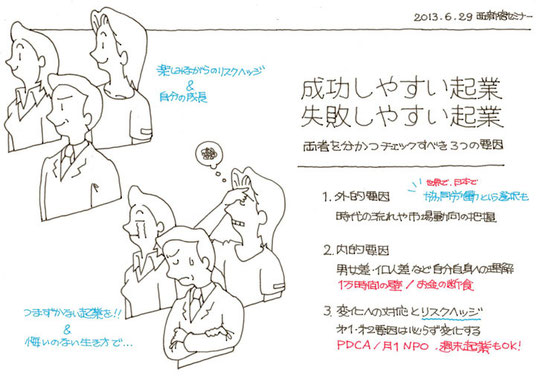 2013.6.29 西新宿セミナー
楽しみながらのリスクヘッジ
&
自分の成長
成功しやすい起業
失敗しやすい起業
両者を分かつチェックすべき3つの要因
世界で、日本で
1. 外的要因
協同労働という選択も
時代の流れや市場動向の把握
2. 内的要因
男女差・個人差など自分自身への理解
1万時間の壁/お金の断食
3. 変化への対応とリスクヘッジ
オ1・オ2要因は必らず変化する
PDCA/月1 NPO・週末起業もOK!
つまずかない起業を!!
&
悔いのない生き方で…